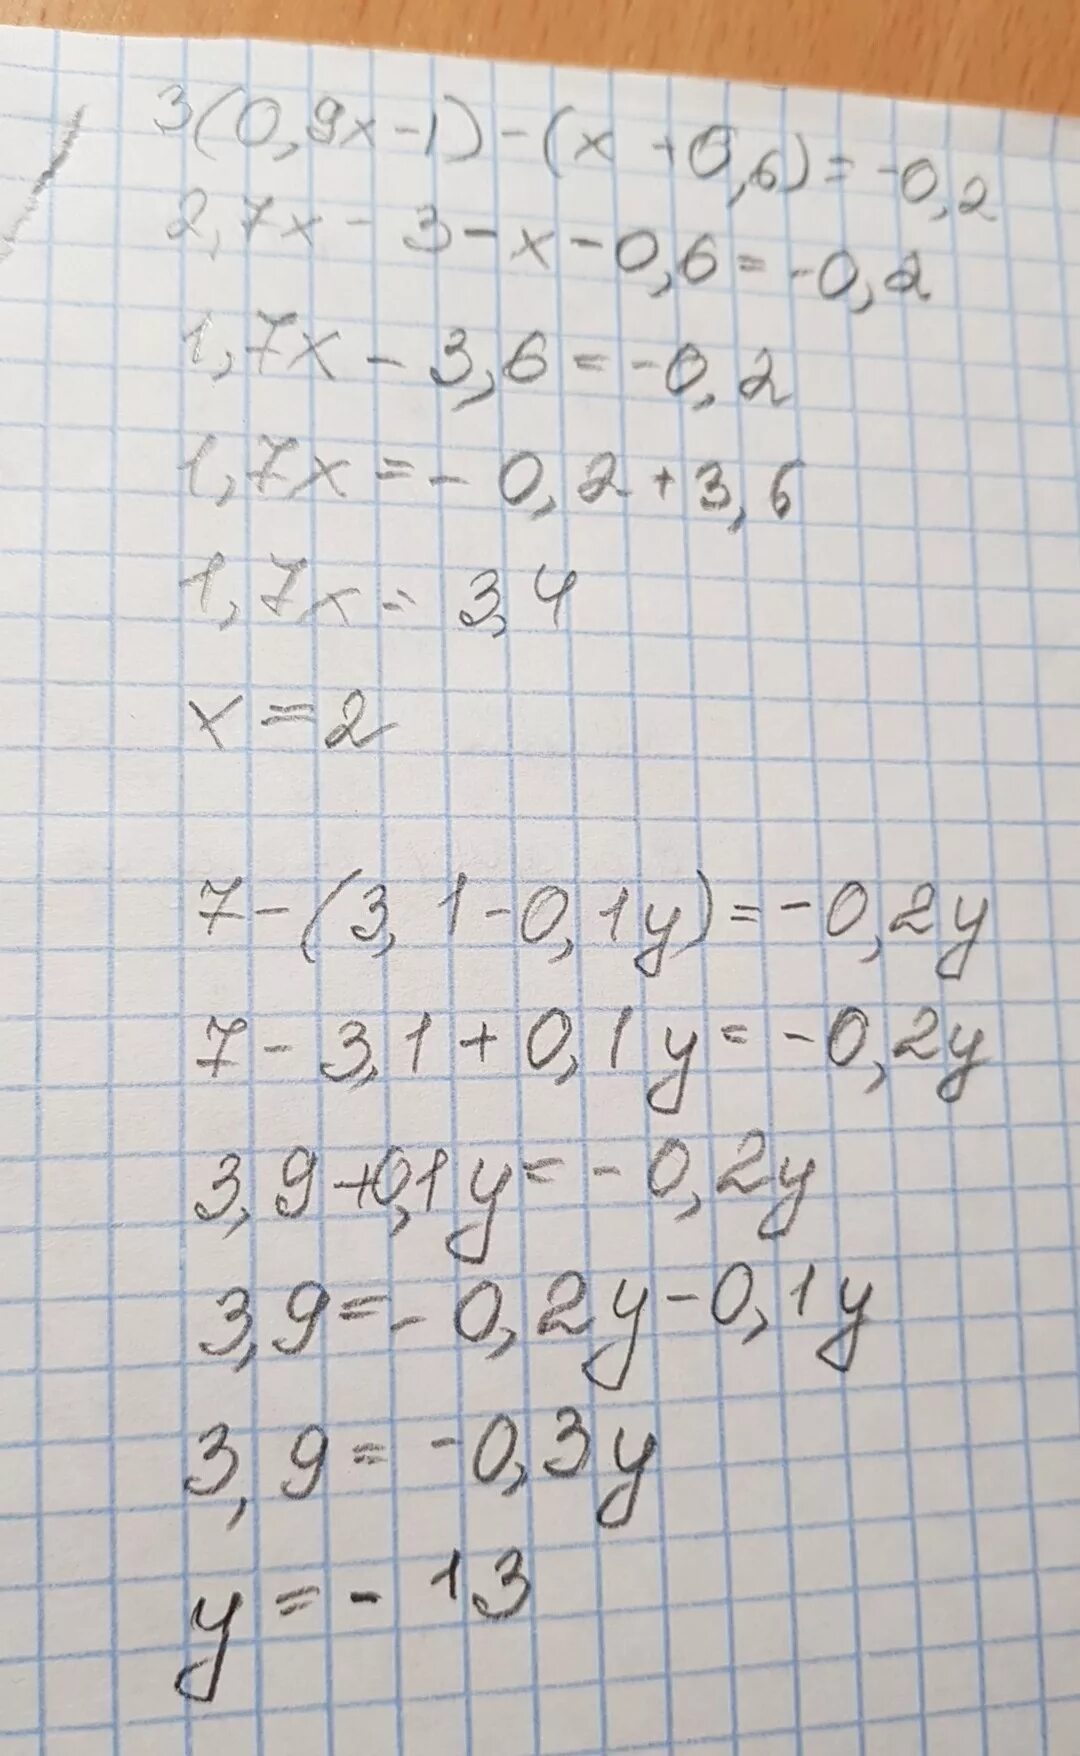 3(0,9x-1)-(x+0,6)=-0,2
2,7x-3-x-0,6=-0,2
1,7x-3,6=-0,2
1,7x=-0,2+3,6
1,7x=3,4
x=2
7-(3,1-0,1y)=-0,2y
7-3,1+0,1y=-0,2y
3,9+0,1y=-0,2y
3,9=-0,2y-0,1y
3,9=-0,3y
y=-13